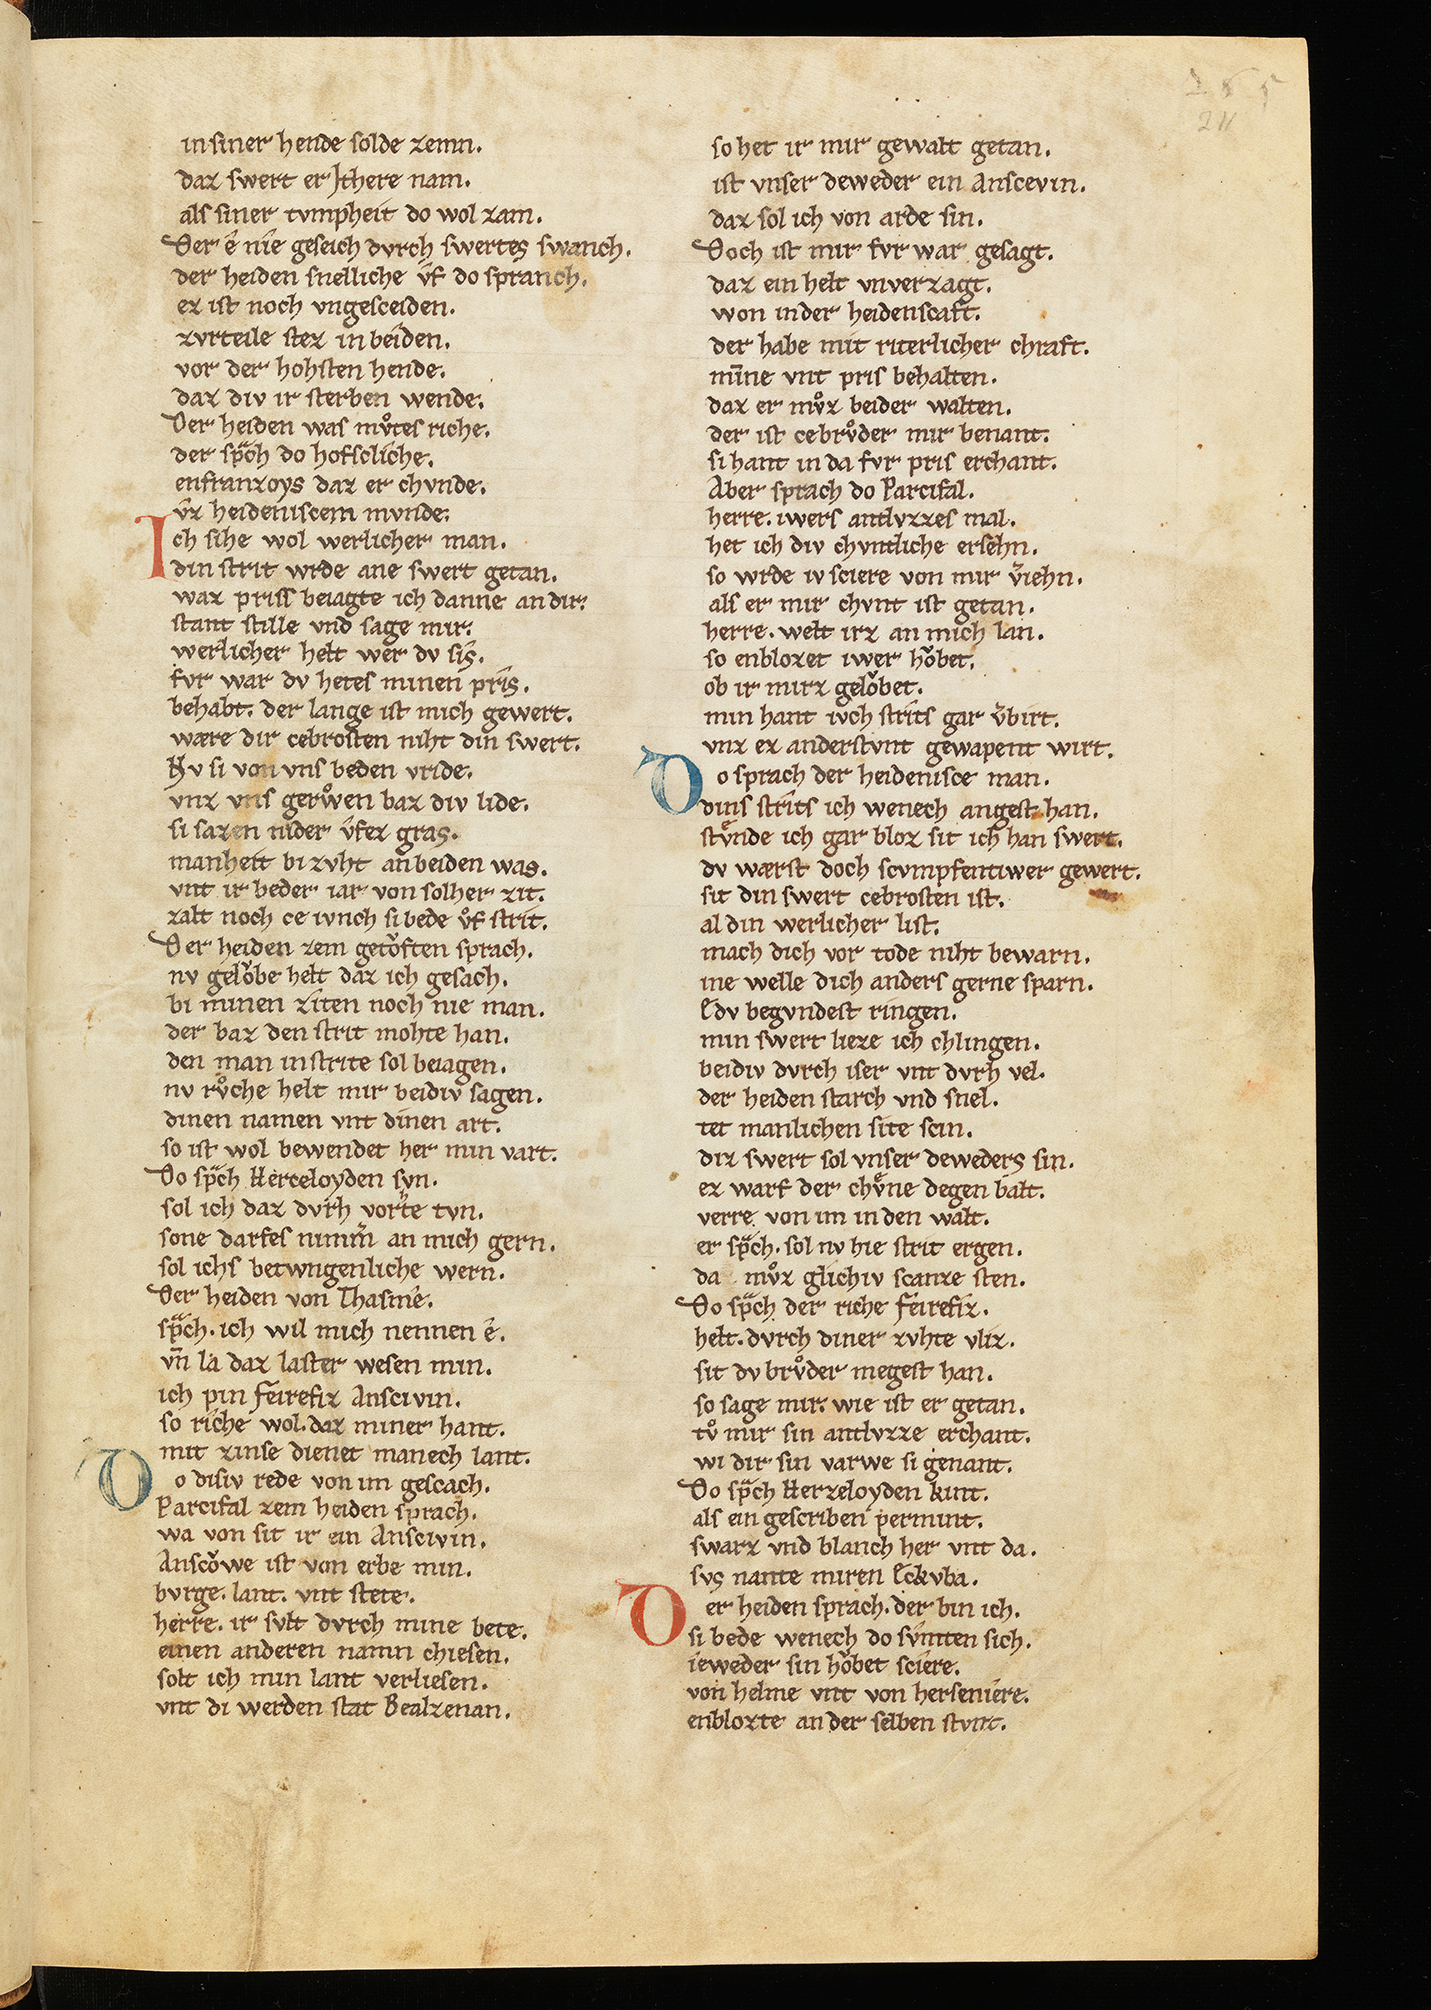 in siner hende solde zemn.
daz swert er Ithere nam.
als siner tvmpheit do wol zam.
Der ê nîe geseich dvrch swertes swanch.
der heiden snelliche v̂f do spranch.
ez ist noch vngesceiden.
zvrteile stez in beiden.
vor der hohsten hende.
daz div ir sterben wende.
Der heiden was mv̊tes riche.
der sp̃ch do hofscliche.
enfranzoys daz er chvnde.
v̂z heideniscem mvnde.
Ich sihe wol werlicher man.
din strit wrde ane swert getan.
waz priss beiagte ich danne an dir.
stant stille vnd sage mir.
werlicher helt wer dv sîs.
fvr war dv hetes minen prîs.
behabt. der lange ist mich gewert.
wære dir cebrosten niht din swert.
Nv si von vns beden vride.
vnz vns gerv̊wen baz div lide.
si sazen nider v̂fez gras.
manheit bi zvht an beiden was.
vnt ir beder iar von solher zit.
zalt noch ce ivnch si bede v̊f strit.
Der heiden zem getŏften sprach.
nv gelŏbe helt daz ich gesach.
bi minen zîten noch nie man.
der baz den strit mohte han.
den man in strite sol beiagen.
nv rv̊che helt mir beidiv sagen.
dinen namen vnt dinen art.
so ist wol bewendet her min vart.
Do sp̃ch Herceloyden svn.
sol ich daz dvrh vorhte tvn.
sone darfes nimm̃ an mich gern.
sol ichs betwngenliche wern.
Der heiden von Thasmê.
sp̃ch. ich wil mich nennen ê.
vñ la daz laster wesen min.
ich pin feirefiz Anscivin.
so rîche wol. daz miner hant.
mit zinse dienet manech lant.
Do disiv rede von im gescach.
Parcifal zem heiden sprach.
wa von sit ir ein Anscivin.
Anscŏwe ist von erbe min.
bvrge. lant. vnt stete.
herre. ir svlt dvrch mine bete.
einen anderen namn chiesen.
solt ich min lant verliesen.
vnt di werden stat Bealzenan.
so het ir mir gewalt getan.
ist vnser deweder ein Anscevin.
daz sol ich von arde sin.
Doch ist mir fvr war gesagt.
daz ein helt vnverzagt.
won in der heidenscaft.
der habe mit riterlicher chraft.
mĩne vnt pris behalten.
daz er mv̊z beider walten.
der ist cebrv̊der mir benant.
si hant in da fvr pris erchant.
Aber sprach do Parcifal.
herre. iwers antlvzzes mal.
het ich div chvntliche ersehn.
so wrde iv sciere von mir v̂iehn.
als er mir chvnt ist getan.
herre. welt irz an mich lan.
so enblozet iwer hŏbet.
ob ir mirz gelŏbet.
min hant ivch strîts gar v̂birt.
vnz ez anderstvnt gewapent wirt.
Do sprach der heidenisce man.
dins strîts ich wenech angest han.
stv̊nde ich gar bloz sit ich han swert.
dv wærst doch scvmpfentiwer gewert.
sit din swert cebrosten ist.
al din werlicher list.
mach dich vor tode niht bewarn.
ine welle dich anders gerne sparn.
Edv begvndest ringen.
min swert lieze ich chlingen.
beidiv dvrch iser vnt dvrh vel.
der heiden starch vnd snel.
tet manlichen site scin.
diz swert sol vnser deweders sin.
ez warf der chv̊ne degen balt.
verre von im in den walt.
er sp̃ch. sol nv hie strit ergen.
da mv̊z glichiv scanze sten.
Do sp̃ch der riche feirefiz.
helt. dvrch diner zvhte vliz.
sit dv brv̊der megest han.
so sage mir. wie ist er getan.
tv̊ mir sin antlvzze erchant.
wi dir sin varwe si genant.
Do sp̃ch Herzeloyden kint.
als ein gescriben permint.
swarz vnd blanch her vnt da.
svs nante miren Eckvba.
Der heiden sprach. der bin ich.
si bede wenech do svmten sich.
ieweder sin hŏbet sciere.
von helme vnt von herseniere.
enblozte an der selben stvnt.